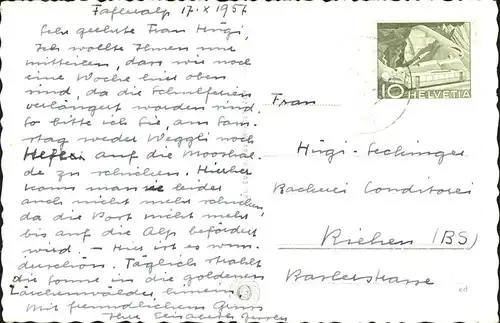 Fafleralp 17. X 1957
Sehr geehrte Frau Hügi,
Ich wollte Ihnen nur
mitteilen, dass wir noch
eine Woche hier oben
sind, da die Schulferien
verlängert worden sind.
So bitte ich Sie, am Sams-
tag weder Weggli noch
Hefe auf die Mooshal-
de zu schicken. Hierher
kann man sie leider
auch nicht mehr schicken,
da die Post nicht mehr
bis auf die Alp befördert
wird. – Hier ist es wun-
derschön. Täglich strahlt
die Sonne in die goldenen
Lärchenwälder hinein.
Mit freundlichem Gruss
Ihre
10 HELVETIA
Frau
Hügi-Seckinger
Bäckerei Conditorei
Riehen (BS)
Baslerstrasse